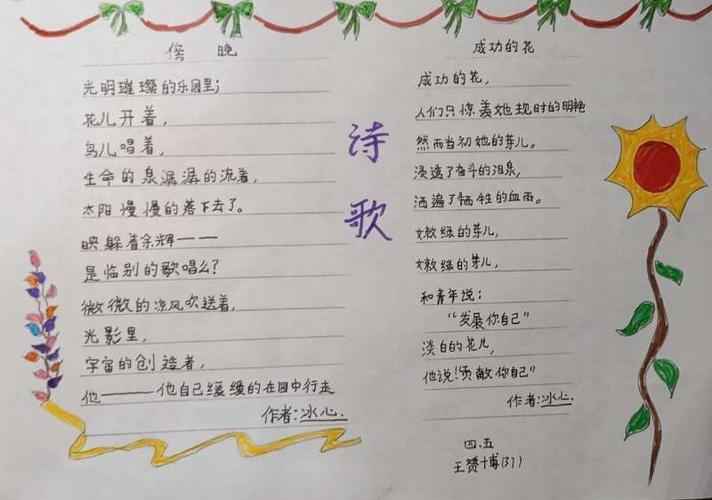 傍 晚
光明璀璨的乐园里;
花儿开着,
鸟儿唱着,
生命的泉潺潺的流着,
太阳慢慢的落下去了。
映躲着余辉——
是临别的歌唱么?
微微的凉风吹送着,
光影里,
宇宙的创造者,
他——他自己缓缓的在园中行走
作者:冰心.
诗
歌
成功的花
成功的花,
人们只惊羡她现时的明艳
然而当初她的芽儿。
浸透了奋斗的泪泉,
洒遍了牺牲的血雨。
嫩绿的芽儿,
嫩绿的芽儿,
和青年说:
“发展你自己”
淡白的花儿,
他说!贡献你自己”
作者:冰心.
四.五
王赞博(31)